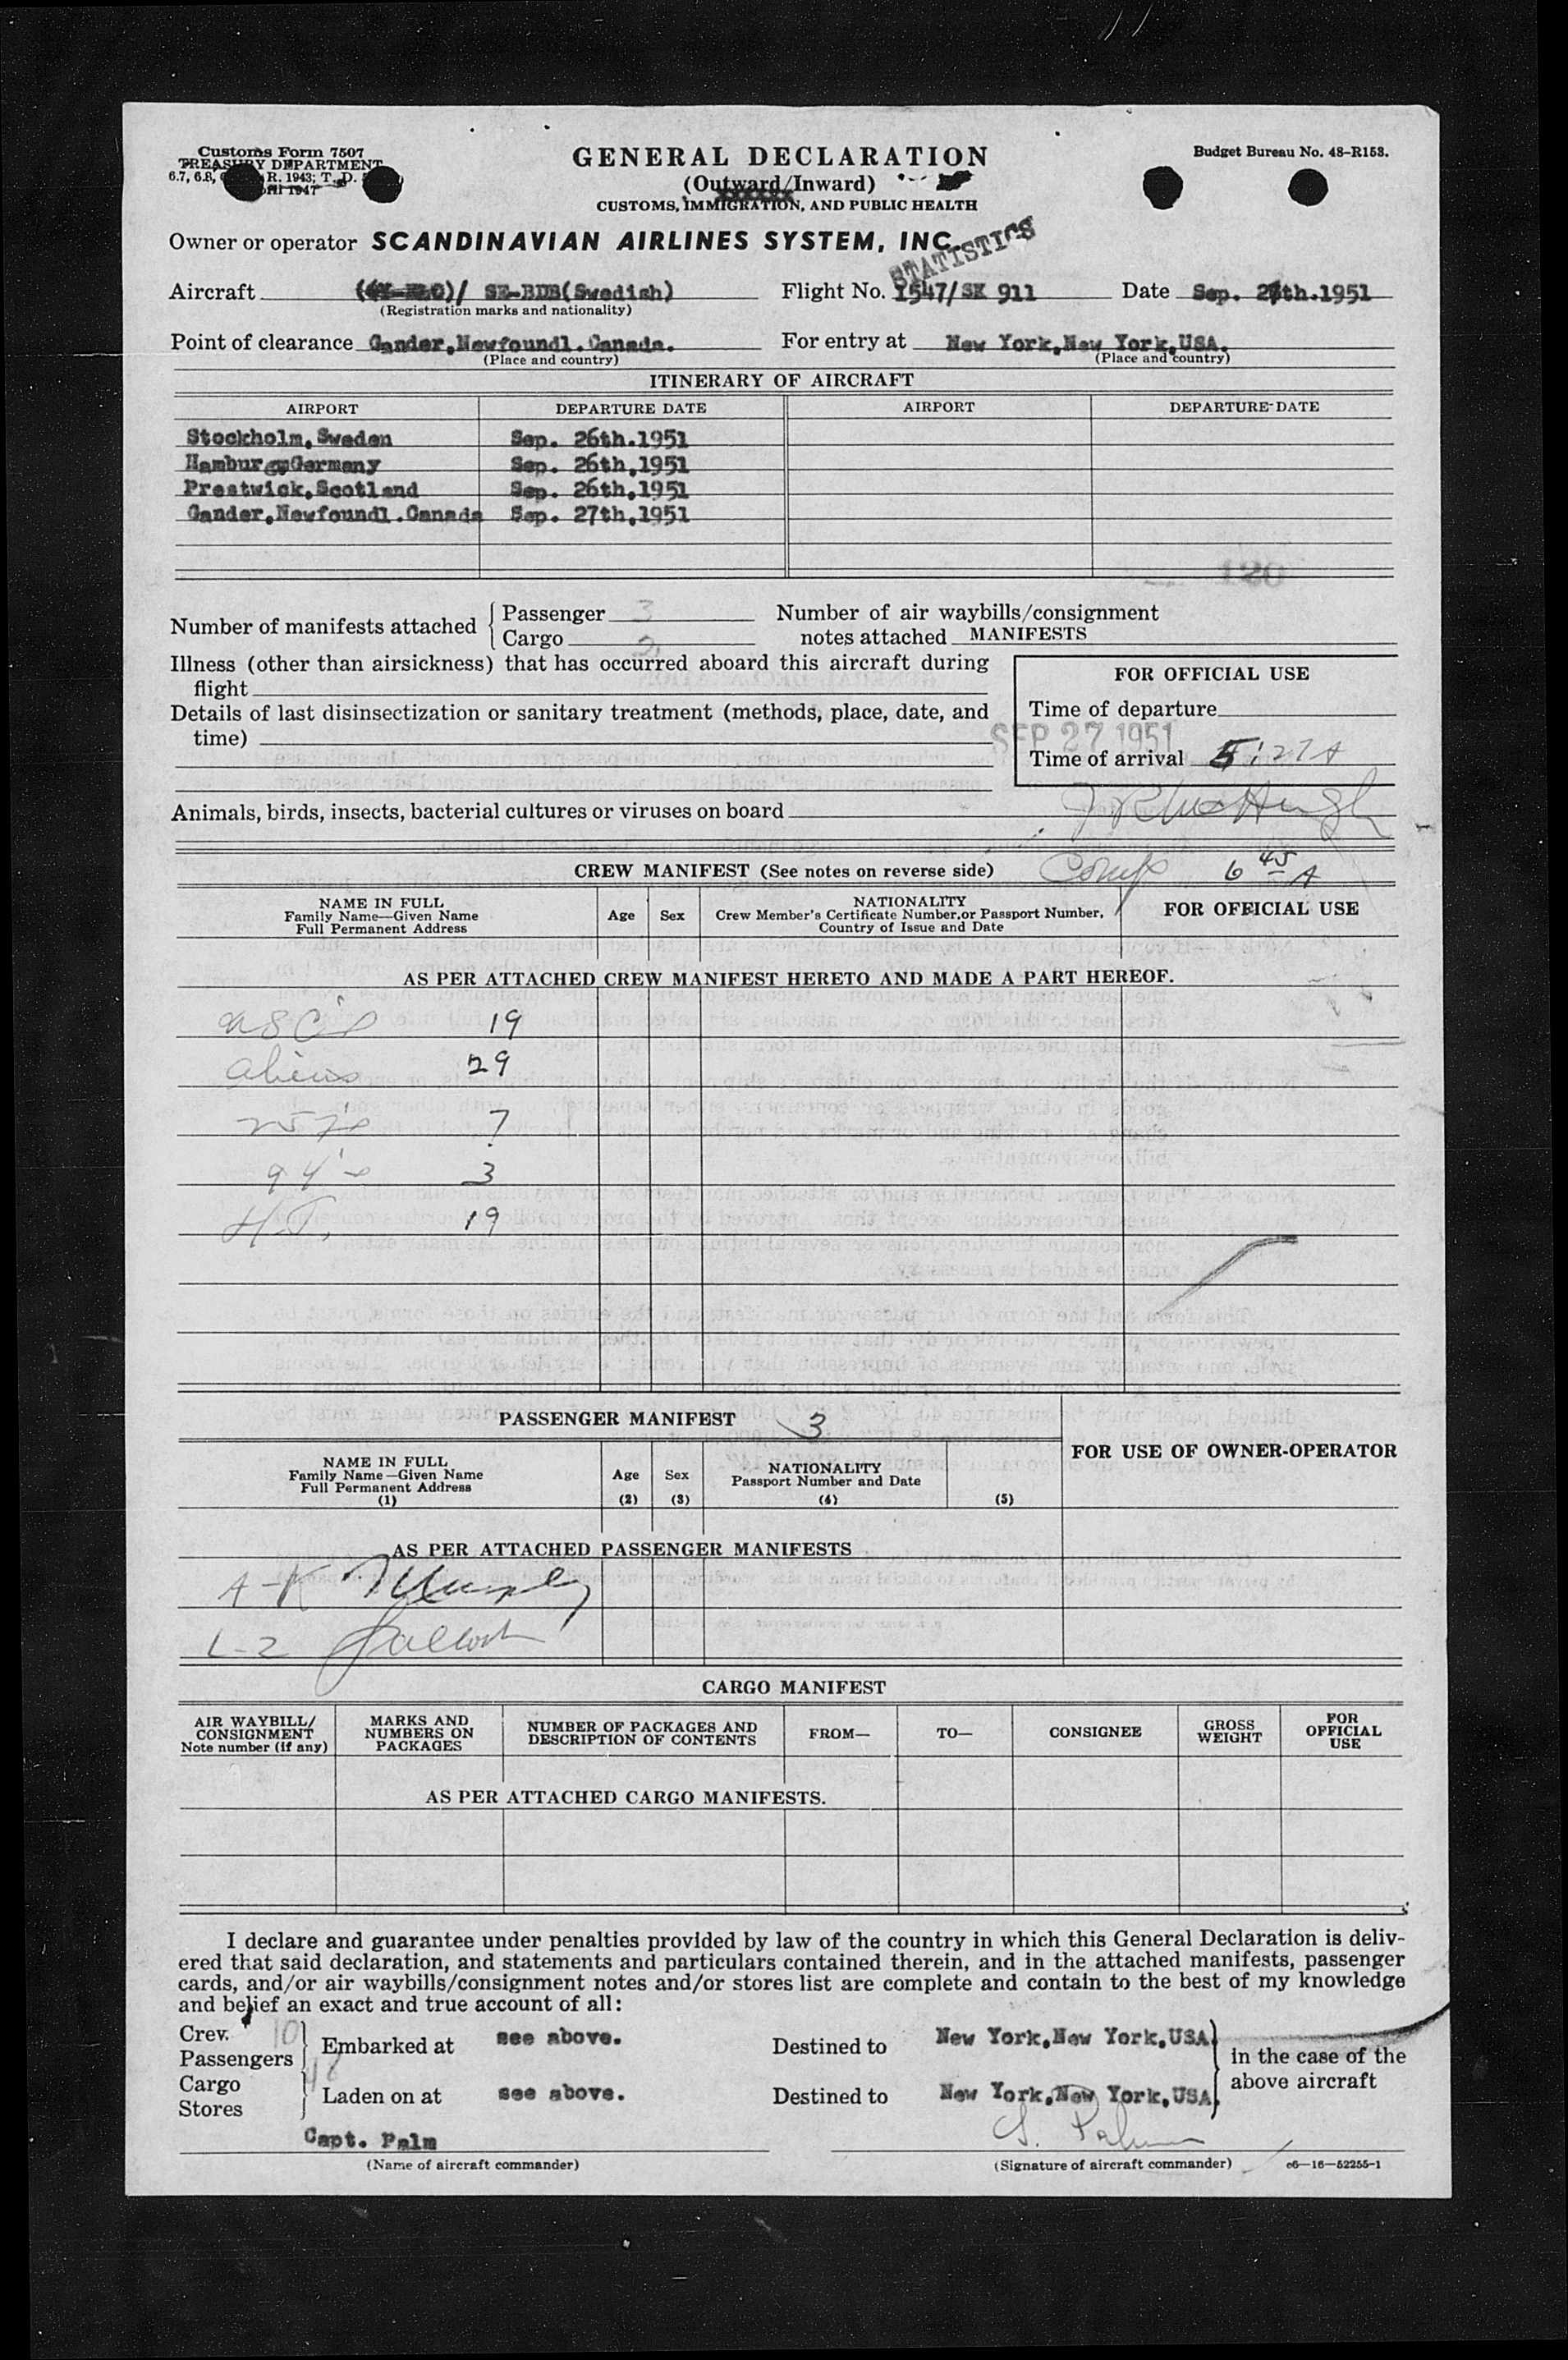 Customs Form 7507
TREASURY DEPARTMENT
6.7, 6.8, R. 1943; T. D.
April 1947
GENERAL DECLARATION
(Outward/Inward)
CUSTOMS, IMMIGRATION, AND PUBLIC HEALTH
Budget Bureau No. 48-R153.
Owner or operator SCANDINAVIAN AIRLINES SYSTEM, INC.
STATISTICS
Aircraft / SE-BDB(Swedish) Flight No. 1547/SK 911 Date Sep. 27th.1951
(Registration marks and nationality)
Point of clearance Gander,Newfoundl.Canada. For entry at New York,New York,USA.
(Place and country) (Place and country)
ITINERARY OF AIRCRAFT
AIRPORT DEPARTURE DATE AIRPORT DEPARTURE DATE
Stockholm,Sweden Sep. 26th.1951
Hamburg,Germany Sep. 26th,1951
Prestwick,Scotland Sep. 26th,1951
Gander,Newfoundl.Canada Sep. 27th,1951
120
Number of manifests attached { Passenger 3
Cargo 2
Number of air waybills/consignment
notes attached MANIFESTS
Illness (other than airsickness) that has occurred aboard this aircraft during
flight
Details of last disinsectization or sanitary treatment (methods, place, date, and
time)
FOR OFFICIAL USE
Time of departure
SEP 27 1951
Time of arrival 5:27A
Animals, birds, insects, bacterial cultures or viruses on board
CREW MANIFEST (See notes on reverse side) Comp 6 45 A
NAME IN FULL
Family Name—Given Name
Full Permanent Address
Age Sex
NATIONALITY
Crew Member's Certificate Number,or Passport Number,
Country of Issue and Date
FOR OFFICIAL USE
AS PER ATTACHED CREW MANIFEST HERETO AND MADE A PART HEREOF.
USC's 19
aliens 29
257's 7
94's 3
H.T. 19
PASSENGER MANIFEST 3
FOR USE OF OWNER-OPERATOR
NAME IN FULL
Family Name—Given Name
Full Permanent Address
(1)
Age
(2)
Sex
(3)
NATIONALITY
Passport Number and Date
(4)
(5)
AS PER ATTACHED PASSENGER MANIFESTS
A-K Murphy
L-Z
CARGO MANIFEST
AIR WAYBILL/
CONSIGNMENT
Note number (if any)
MARKS AND
NUMBERS ON
PACKAGES
NUMBER OF PACKAGES AND
DESCRIPTION OF CONTENTS
FROM— TO— CONSIGNEE
GROSS
WEIGHT
FOR
OFFICIAL
USE
AS PER ATTACHED CARGO MANIFESTS.
I declare and guarantee under penalties provided by law of the country in which this General Declaration is deliv-
ered that said declaration, and statements and particulars contained therein, and in the attached manifests, passenger
cards, and/or air waybills/consignment notes and/or stores list are complete and contain to the best of my knowledge
and belief an exact and true account of all:
Crew 10
Passengers 48
Embarked at see above. Destined to New York,New York,USA
Cargo
Stores
Laden on at see above. Destined to New York,New York,USA.
in the case of the
above aircraft
Capt. Palm S. Palm
(Name of aircraft commander) (Signature of aircraft commander) c6—16—52255-1